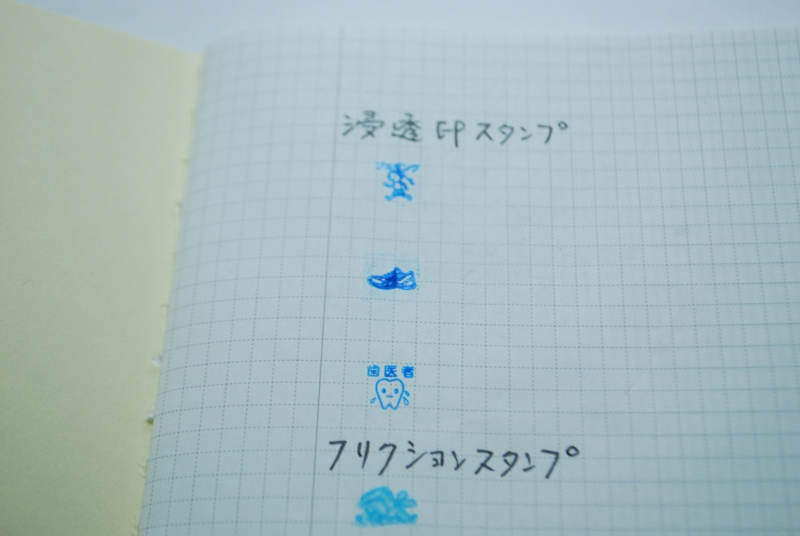 浸透印スタンプ
歯医者
フリクションスタンプ